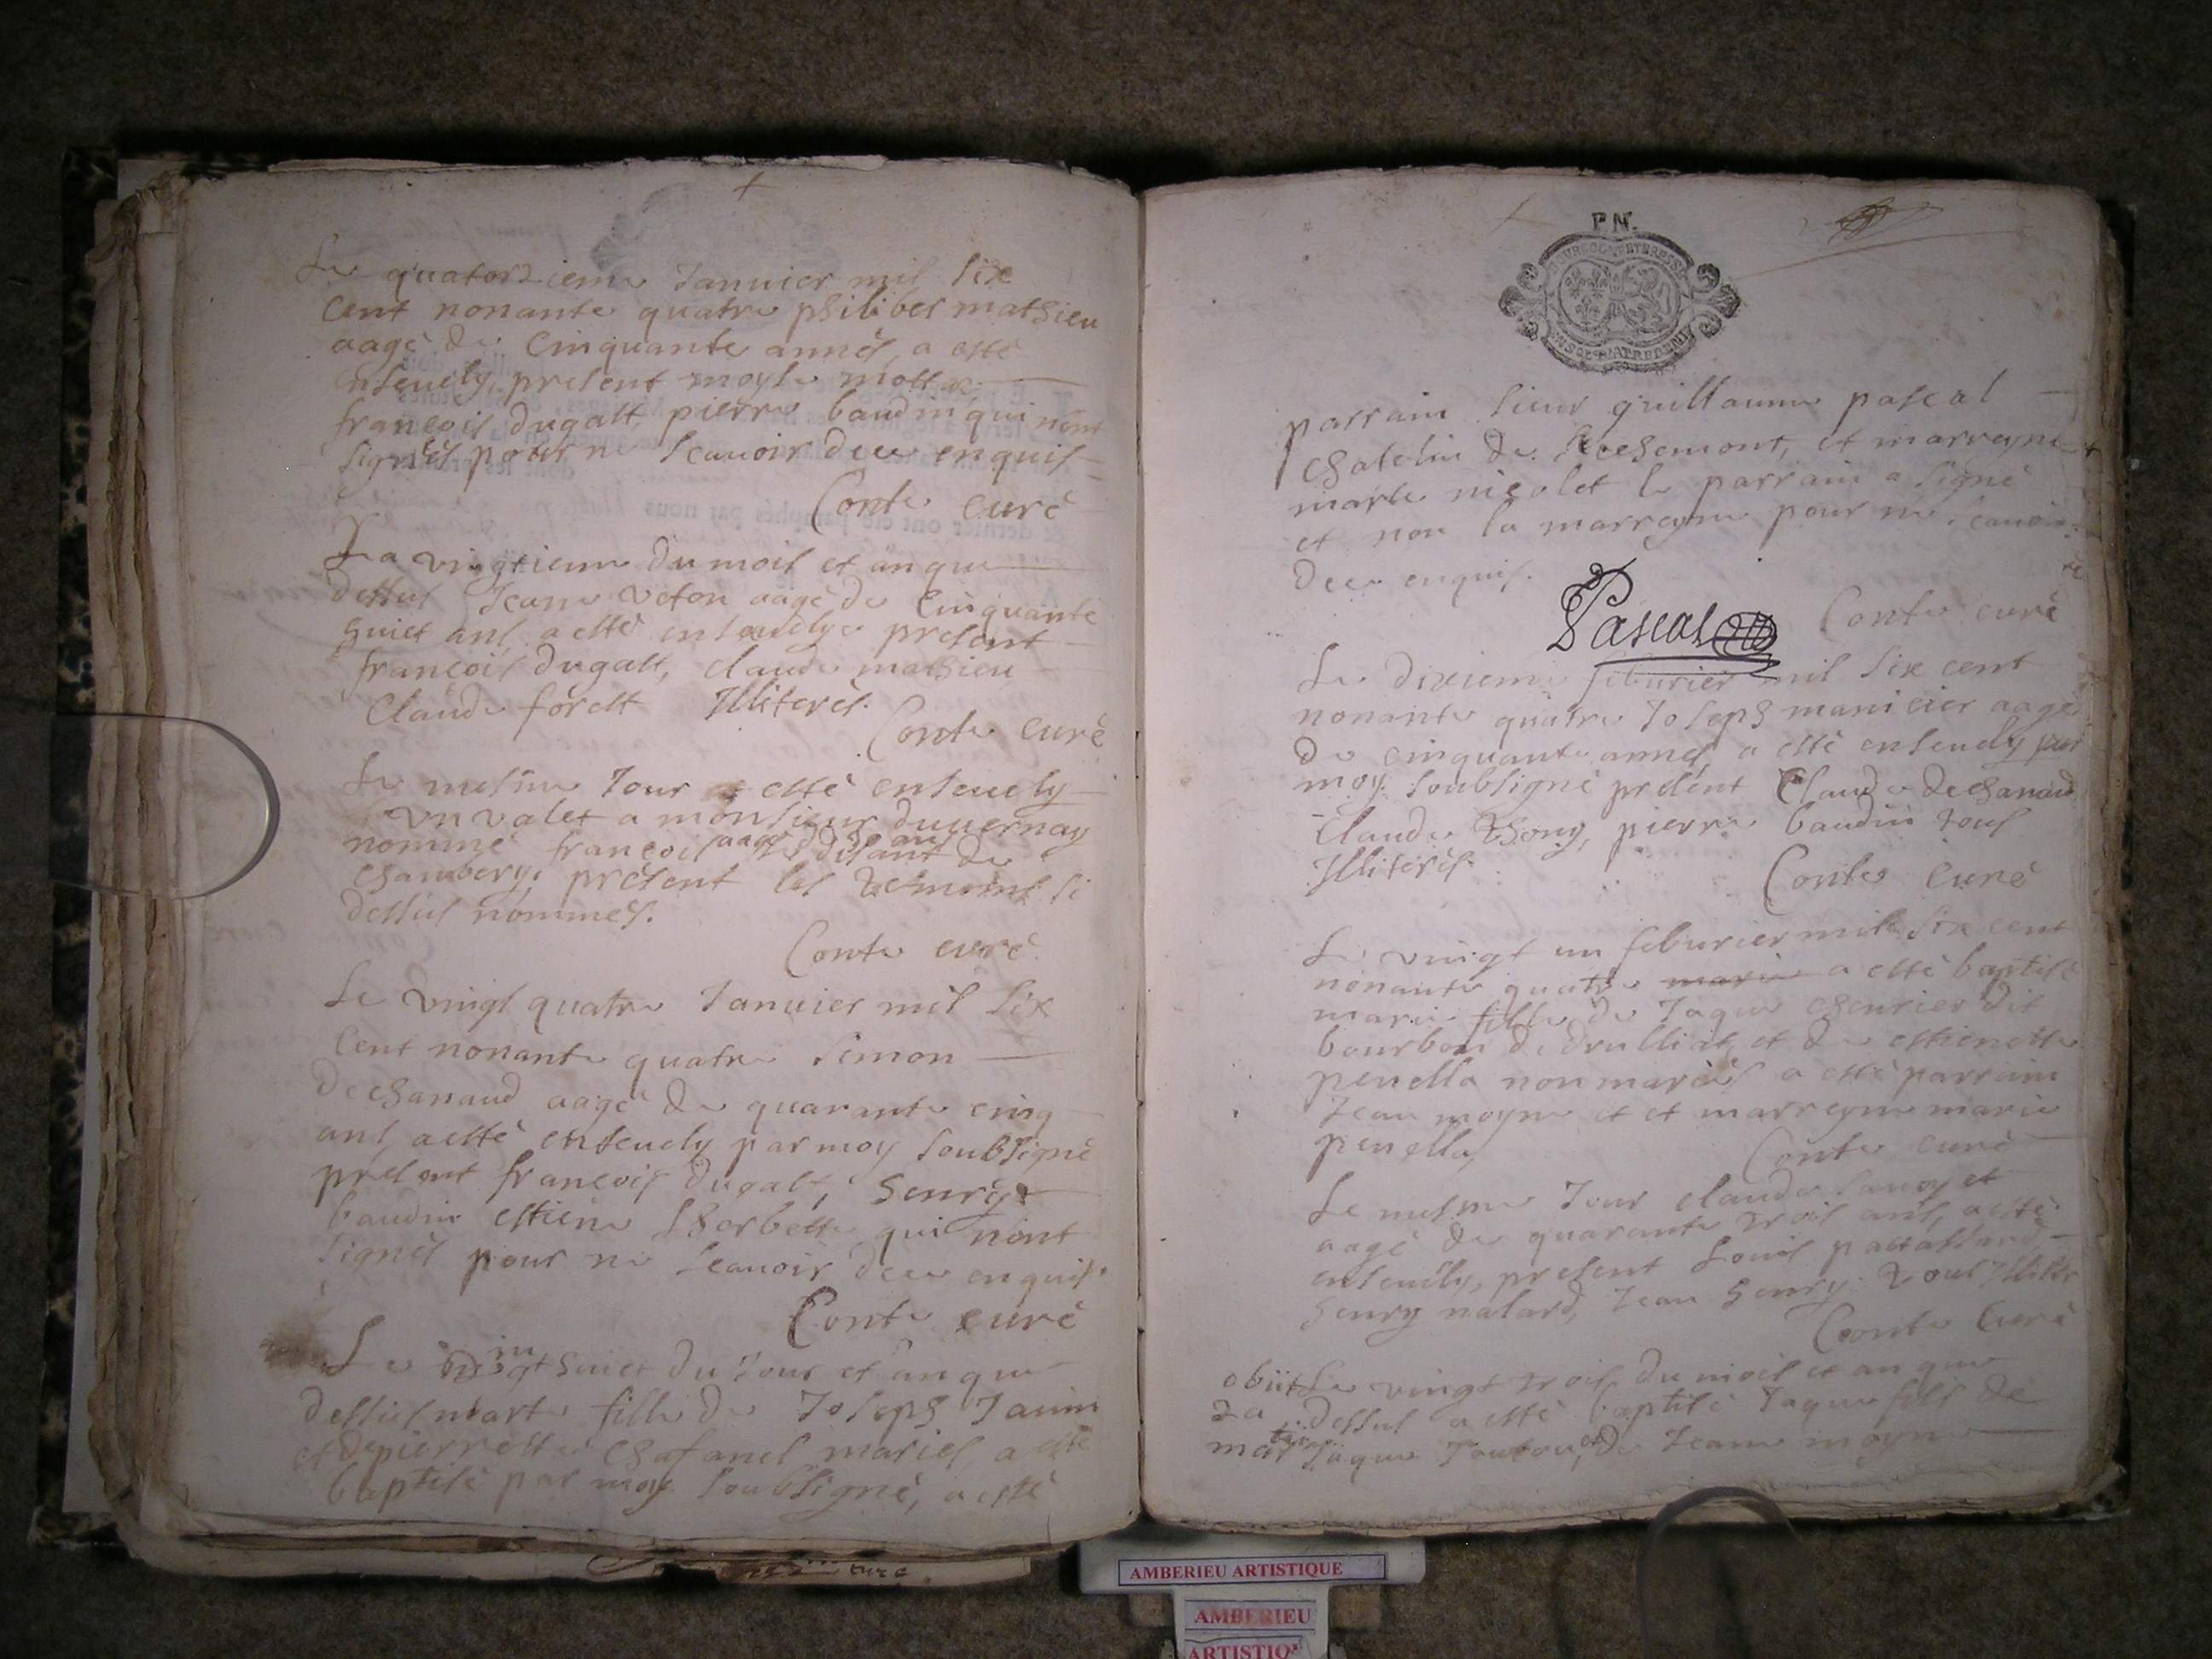 Le quatorzieme Januier mil six
cent nonante quatre philiber mathieu
aagé de Cinquante annés, a esté
enseuely, present moyse mollar
françois dugast, pierre baudin qui nont
signés pour ne scauoir dece enquis
Conte curé
La vingtieme du mois et an que
dessus Jeane veton aagé de Cinquante
huict ans a esté enseuelye present
françois dugast, claude mathieu
Claude forest Illiterés.
Conte curé
Le mesme Jour a esté enseuely
vn valet a monsieur duuernay
nommé françois se disant de
chambery, present les temoins si
dessus nommés.
Conte curé
Le vingt quatre Januier mil six
cent nonante quatre simon
dechanaud aagé de quarante cinq
ans, a esté enseuely par moy soubsigné
present françois dugast, henry
baudin estiene qui nont
signés pour ne scauoir dece enquis.
Conte curé
Le vingt huict du Jour et an que
dessus marte fille de Joseph Janin
et de pierrette chafanel mariés, a esté
baptisé par moy soubsigné, a esté
P.N.
parrain sieur guillaume pascal
chatelin de Rochemont, et marrayne
marte nicolet le parrain a signé
et non la marrayne pour ne scauoir
dece enquis.
Pascal
Conte curé
Le dixieme feburier mil six cent
nonante quatre Joseph manicier aagé
de cinquante annés, a esté enseuely par
moy soubsigné present Claude dechanaud
Claude thony, pierre baudin tous
Illiterés.
Conte Curé
Le vingt un feburier mil six cent
nonante quatre marie a esté baptisé
marie fille de Jaque cheurier dit
bourbon de drulliat et de estienette
penella non mariés a esté parrain
Jean moyne et et marrayne marie
penella,
Conte curé
Le mesme Jour claude sauoy et
aagé de quarante trois ans, a esté
enseuely, present Louis
henry nalard, Jean henry tous Illitr
Conte Curé
obiit Le vingt trois du mois et an que
2a dessus a esté baptisé Jaque fils de
martii Jaque et de Jeane moyne
AMBERIEU ARTISTIQUE
AMBERIEU
ARTISTIQ